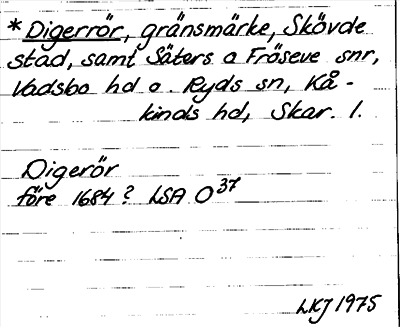 *Digerrör, gränsmärke, Skövde
stad, samt Säters o Fröseve snr,
Vadsbo hd o. Ryds sn, Kå-
kinds hd, Skar. l.
Digerör
före 1684? LSA O37
LKJ 1975